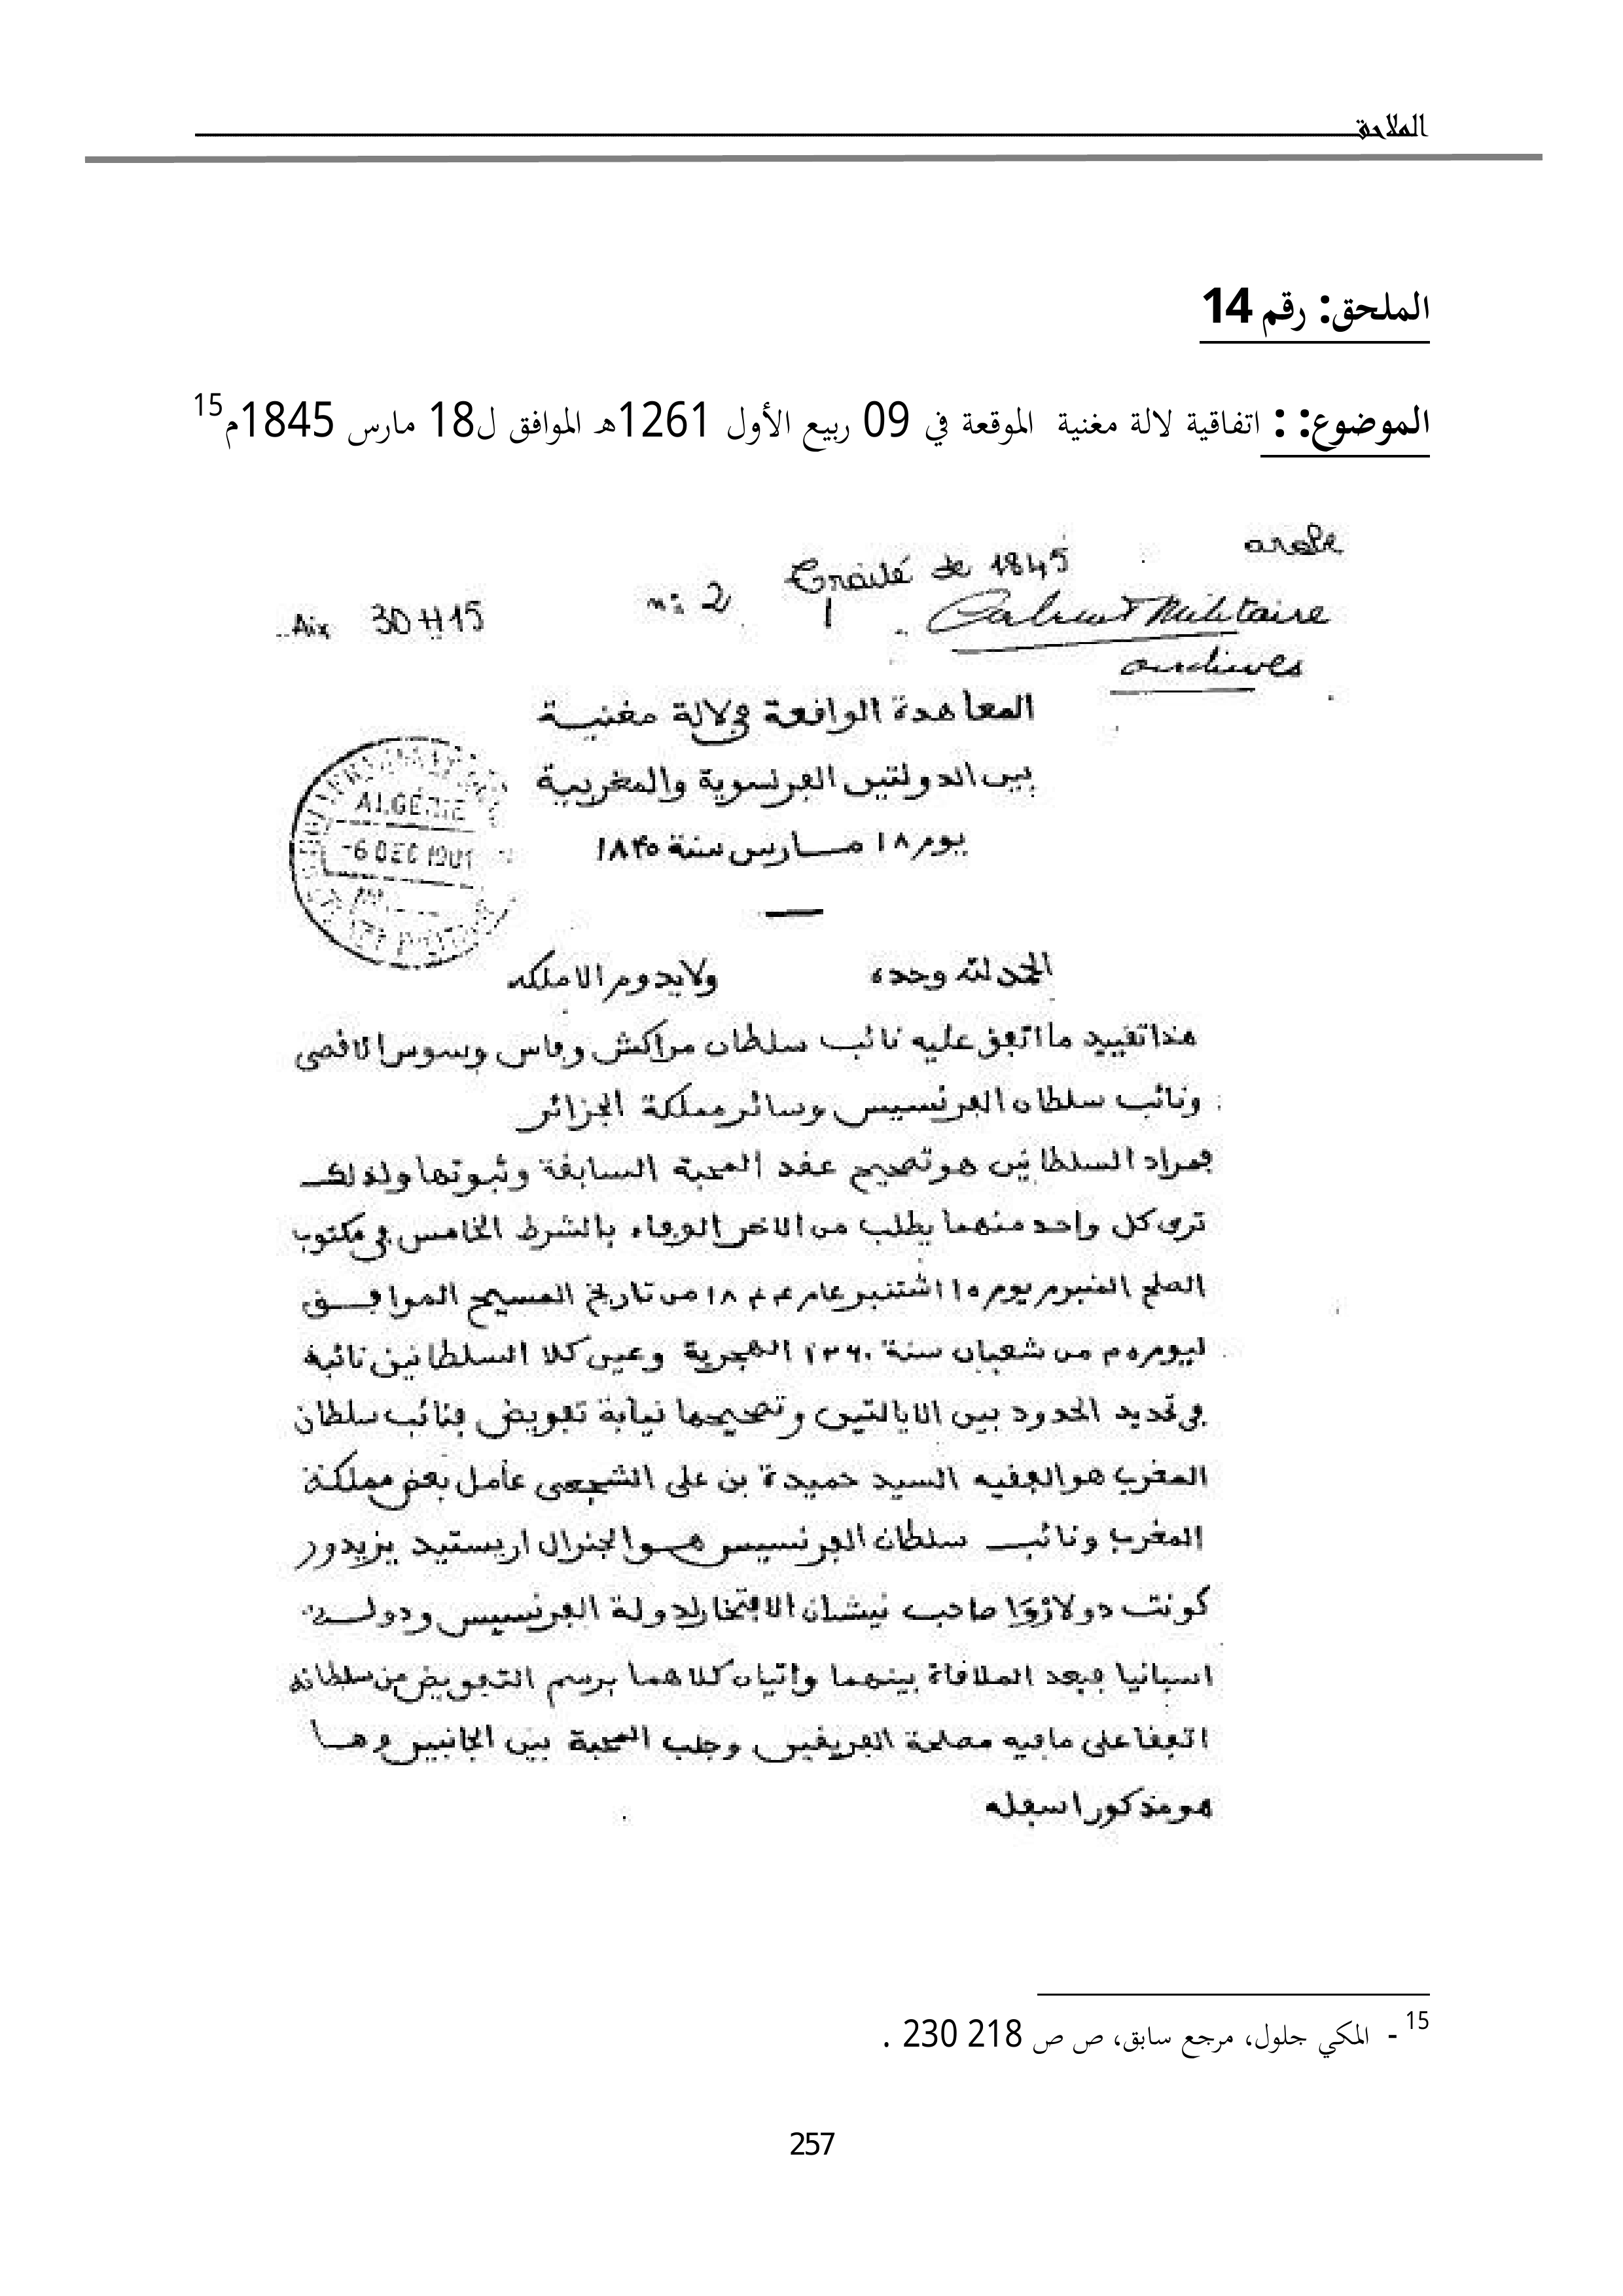 الملاحق
الملحق: رقم 14
الموضوع: : اتفاقية لالة مغنية الموقعة في 09 ربيع الأول 1261هـ الموافق ل18 مارس 1845م15
arabe
Traité de 1845
nº 2
Aix 30H15
Cabinet Militaire
archives
المعاهدة الوافعة ڢي لالة مغنيــة
بين الدولتين الڢرنسوية والمغربية
يوم ١٨ مــارس سنة ١٨۴٥
ALGÉRIE
-6 DEC 1901
الحمد لله وحده ولا يدوم الا ملكه
هذا تفييد ما اتڢق عليه نائب سلطان مراكش وڢاس وسوس الافصى
ونائب سلطان الڢرنسيس وسائر مملكة الجزائر
ڢمراد السلطانين هو تصحيح عفد المحبة السابفة وثبوتها ولذلك
ترى كل واحد منهما يطلب من الاخر الوڢاء بالشرط الخامس ڢي مكتوب
الصلح المبروم يوم ١٥ اشتنبر عام ١٨٤٤ من تاريخ المسيح المواڢــق
ليوم ٢٥ من شعبان سنة ١٢٦٠ الهجرية وعين كلا السلطانين نائبه
ڢي تحديد الحدود بين الايالتين وتصحيحها نيابة تڢويض ڢنائب سلطان
المغرب هو الڢفيه السيد حميدة بن على الشجعى عامل بعض مملكة
المغرب ونائب سلطان الڢرنسيس هــو الجنرال اريستيد يزيدور
كونت دولاروا صاحب نيشان الاڢتخار لدولة الڢرنسيس ودولــة
اسبانيا ڢبعد الملافاة بينهما واتيان كلاهما برسم التڢويض من سلطانه
اتڢفا على ما ڢيه مصلحة الڢريفين وجلب المحبة بين الجانبين وهــا
هو مذكور اسڢله
15 - المكي جلول، مرجع سابق، ص ص 218 230 .
257